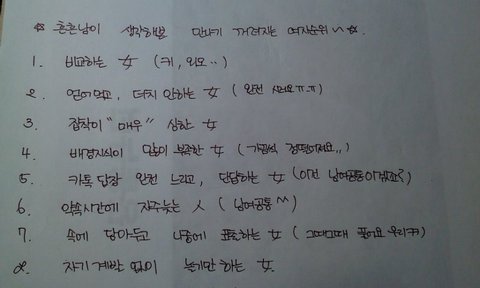 ☆ 흔흔남이 생각해본 만나기 꺼려지는 여자순위 ~ ☆.
1. 비교하는 女 (키, 외모··)
2. 얻어먹고, 더치 안하는 女 (완전 시러요ㅠ.ㅠ)
3. 집착이 "매우" 심한 女
4. 배경지식이 많이 부족한 女 (
5. 카톡 답장 완전 느리고, 단답하는 女 (이건 남여공통이겠죠?)
6. 약속시간에 자주늦는 人 (남여공통^^)
7. 속에 담아두고 나중에 표출하는 女 (그때그때 풀어요 우리ㅋㅋ)
8. 자기 계발 없이 놀게만 하는 女.